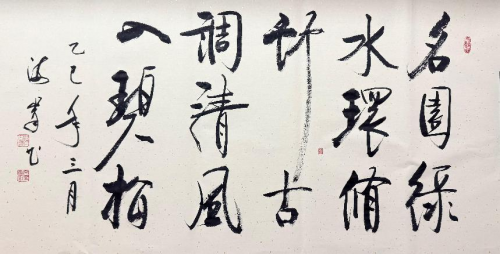 名園綠
水環脩
竹古
調清風
入碧梧
乙巳年三月
书